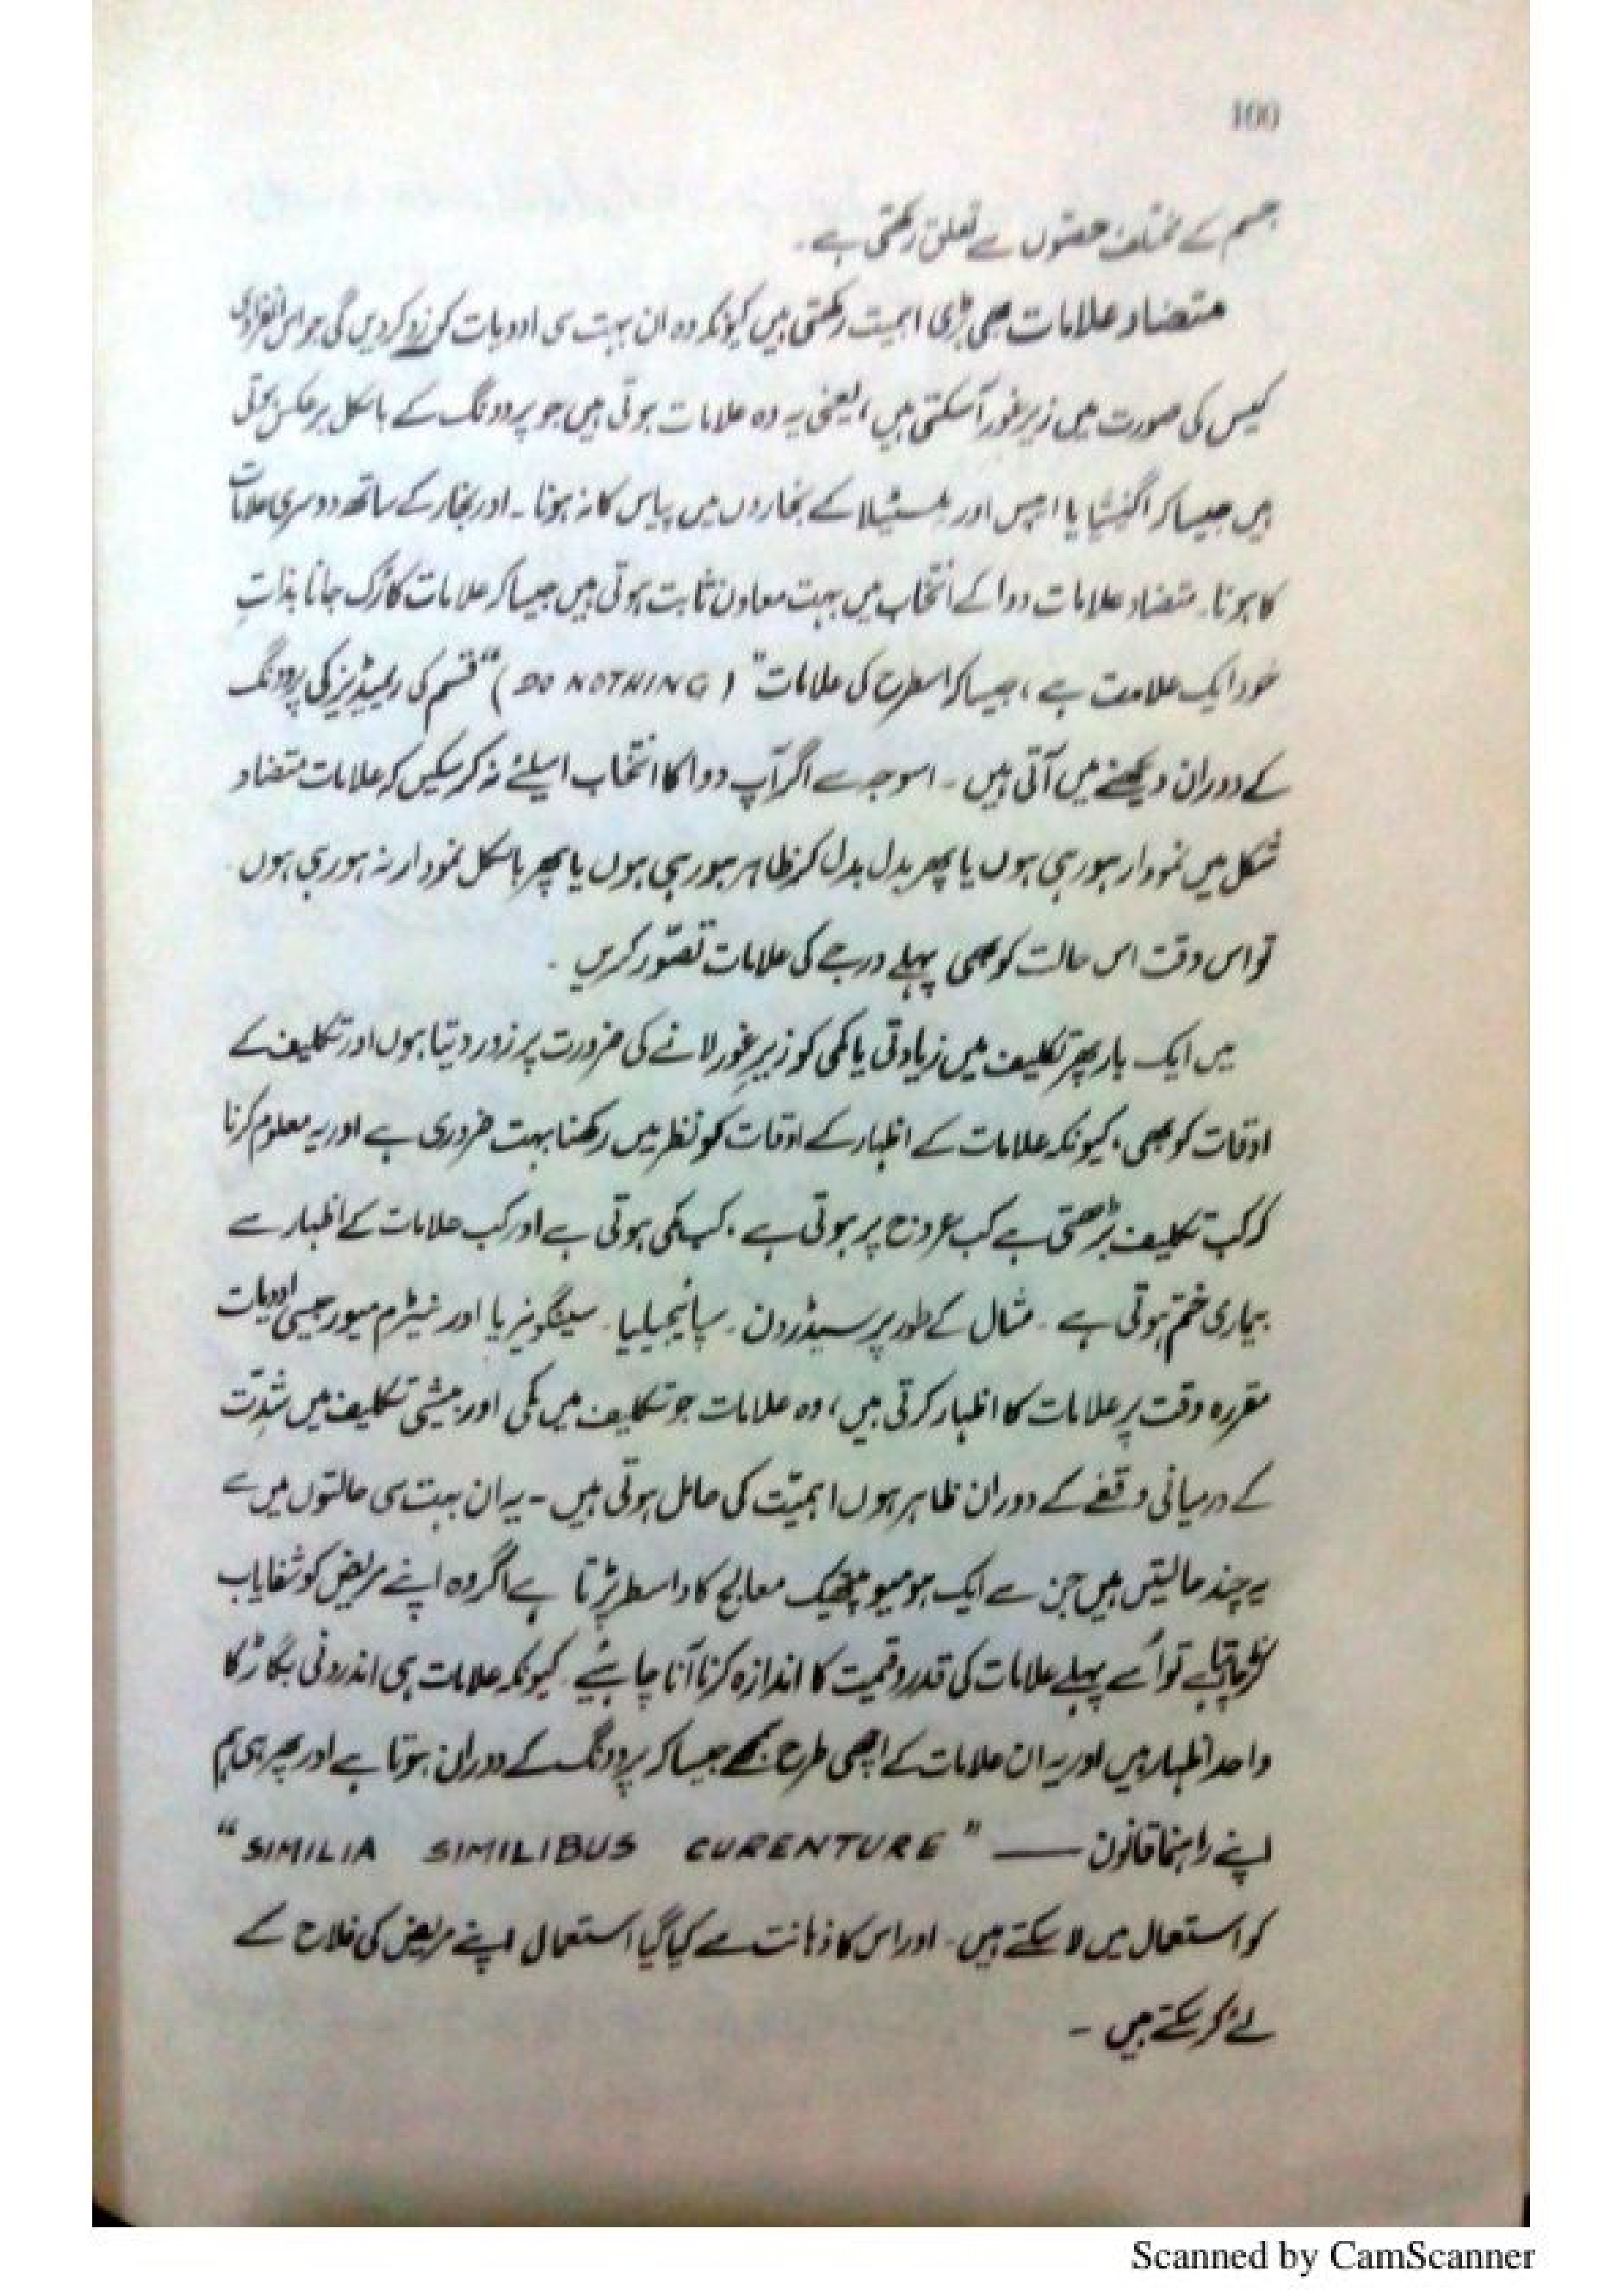 100
جسم کے مختلف حصّوں سے تعلق رکھتی ہے۔
متضاد علامات بھی بڑی اہمیت رکھتی ہیں کیونکہ وہ ان بہت سی ادویات کو رد کر دیں گی جو اس انفرادی
کیس کی صورت میں زیر غور آسکتی ہیں، یعنی یہ وہ علامات ہوتی ہیں جو پروونگ کے بالکل برعکس ہوتی
ہیں جیسا کہ اگنیشیا یا ایپس اور پلسٹیلا کے بخاروں میں پیاس کا نہ ہونا۔ اور بخار کے ساتھ دوسری علامات
کا ہونا۔ متضاد علامات دوا کے انتخاب میں بہت معاون ثابت ہوتی ہیں جیسا کہ علامات کا رُک جانا بذاتِ
خود ایک علامت ہے، جیسا کہ اسطرح کی علامات "(DO NOTHING)" قسم کی ریمیڈیز کی پروونگ
کے دوران دیکھنے میں آتی ہیں۔ اسوجہ سے اگر آپ دوا کا انتخاب اسلئے نہ کر سکیں کہ علامات متضاد
شکل میں نمودار ہو رہی ہوں یا پھر بدل بدل کر ظاہر ہو رہی ہوں یا پھر بالکل نمودار نہ ہو رہی ہوں
تو اس وقت اس حالت کو بھی پہلے درجے کی علامات تصّور کریں۔
میں ایک بار پھر تکلیف میں زیادتی یا کمی کو زیرِ غور لانے کی ضرورت پر زور دیتا ہوں اور تکلیف کے
اوقات کو بھی، کیونکہ علامات کے اظہار کے اوقات کو نظر میں رکھنا بہت ضروری ہے اور یہ معلوم کرنا
کہ کب تکلیف بڑھتی ہے کب عروج پر ہوتی ہے، کب کمی ہوتی ہے اور کب علامات کے اظہار سے
بیماری ختم ہوتی ہے۔ مثال کے طور پر سیڈرون۔ سپائیجیلیا۔ سینگونیریا اور نیٹرم میور جیسی ادویات
مقررہ وقت پر علامات کا اظہار کرتی ہیں، وہ علامات جو تکلیف میں کمی اور بیشی تکلیف میں شدّت
کے درمیانی وقفے کے دوران ظاہر ہوں اہمیّت کی حامل ہوتی ہیں۔ یہ ان بہت سی حالتوں میں سے
یہ چند حالیتیں ہیں جن سے ایک ہومیوپیتھک معالج کا واسطہ پڑتا ہے اگر وہ اپنے مریض کو شفایاب
کرنا چاہتا ہے تو اُسے پہلے علامات کی قدر و قیمت کا اندازہ کرنا آنا چاہئیے۔ کیونکہ علامات ہی اندرونی بگاڑ کا
واحد اظہار ہیں اور یہ ان علامات کے اچھی طرح سمجھے جیسا کہ پروونگ کے دوران ہوتا ہے اور پھر ہی ہم
اپنے راہنما قانون — "SIMILIA SIMILIBUS CURENTURE"
کو استعمال میں لا سکتے ہیں۔ اور اس کا ذہانت سے کیا گیا استعمال اپنے مریض کی فلاح کے
لئے کر سکتے ہیں۔
Scanned by CamScanner